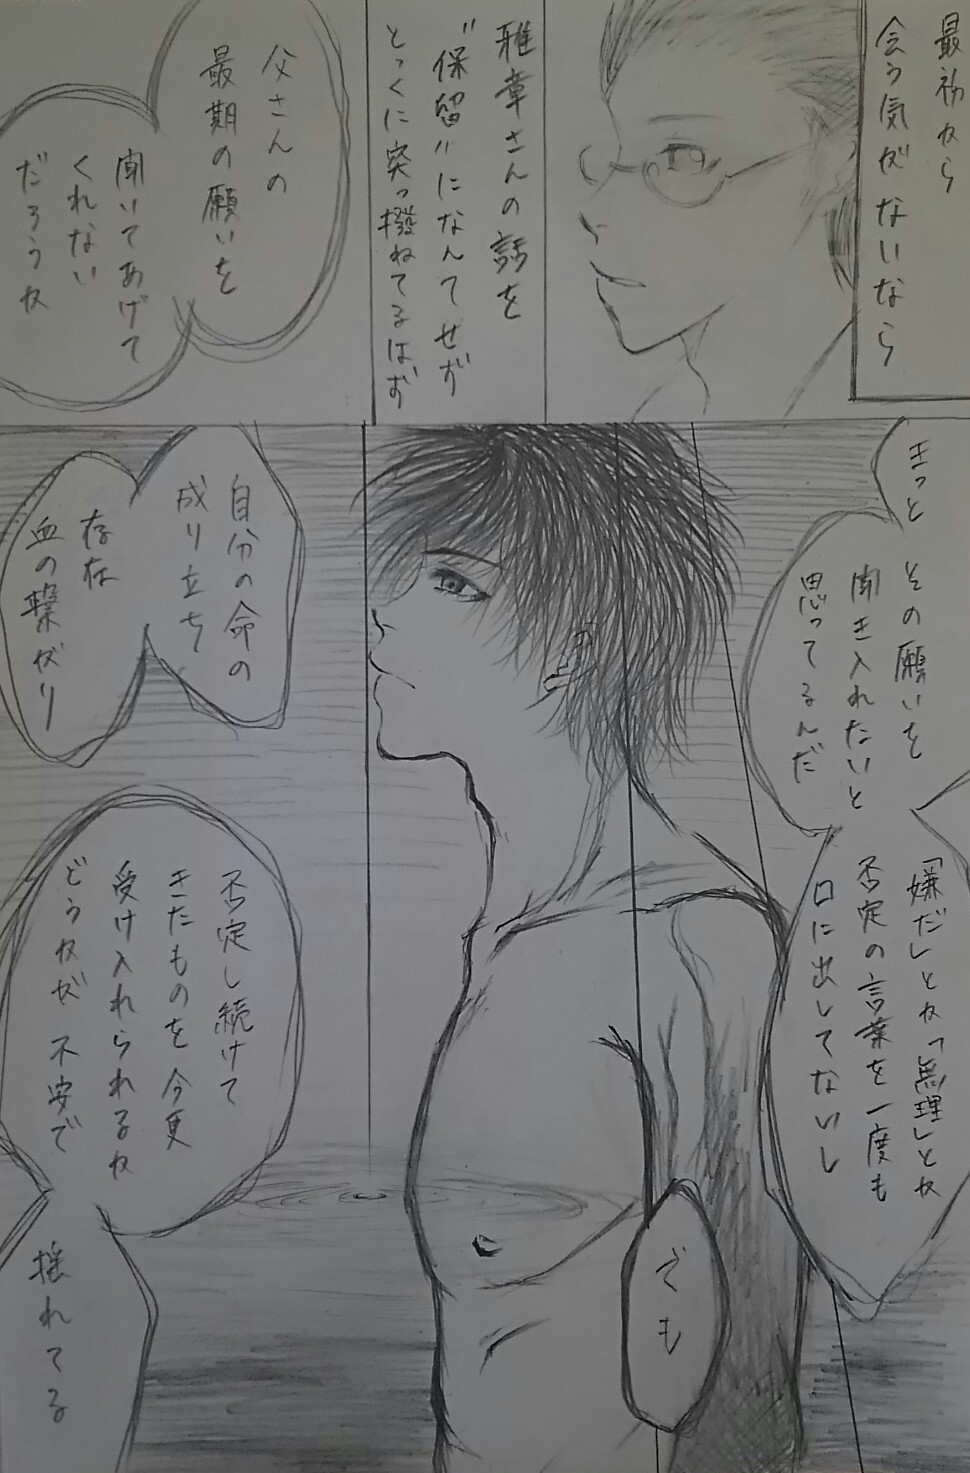 最初から
会う気がないなら
雅章さんの話を
"保留"になんてせず
とっくに突っ撥ねてるはず
父さんの
最期の願いを
聞いてあげて
くれない
だろうか
きっと
その願いを
聞き入れたいと
思ってるんだ
「嫌だ」とか「無理」とか
否定の言葉を一度も
口に出してないし
でも
自分の命の
成り立ち
存在
血の繋がり
否定し続けて
きたものを今更
受け入れられるか
どうかが不安で
揺れてる